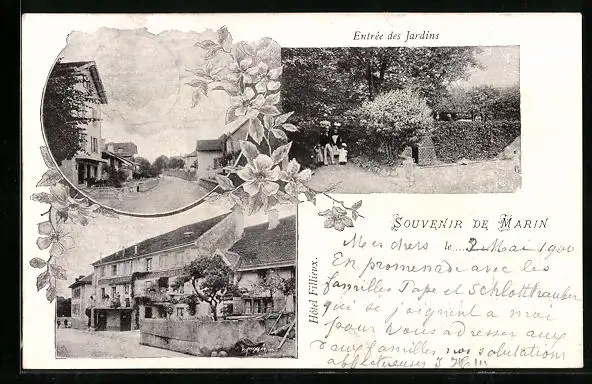 Entrée des Jardins
SOUVENIR DE MARIN
Hôtel Fillieux.
Mes chers le 2 Mai 1900
En promenade avec les
familles Pape et Schlotthauber
qui se joignent a moi
pour vous adresser aux
deux familles nos salutations
affectueuses